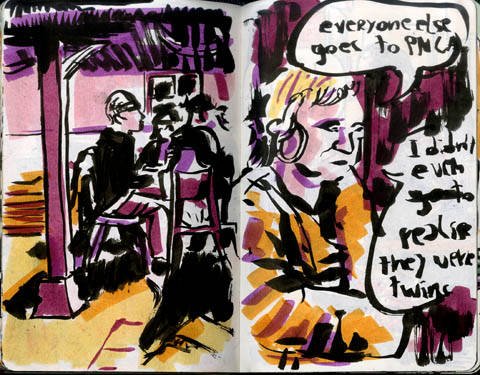 everyone else
goes to PNCA
I didn't
even
realise
they were
twins